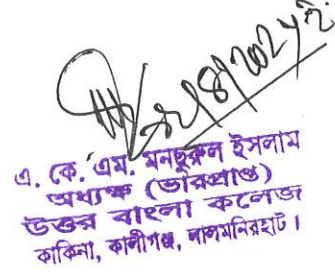 এ. কে. এম. মনছুরুল ইসলাম
অধ্যক্ষ (ভারপ্রাপ্ত)
উত্তর বাংলা কলেজ
কাকিনা, কালীগঞ্জ, লালমনিরহাট।